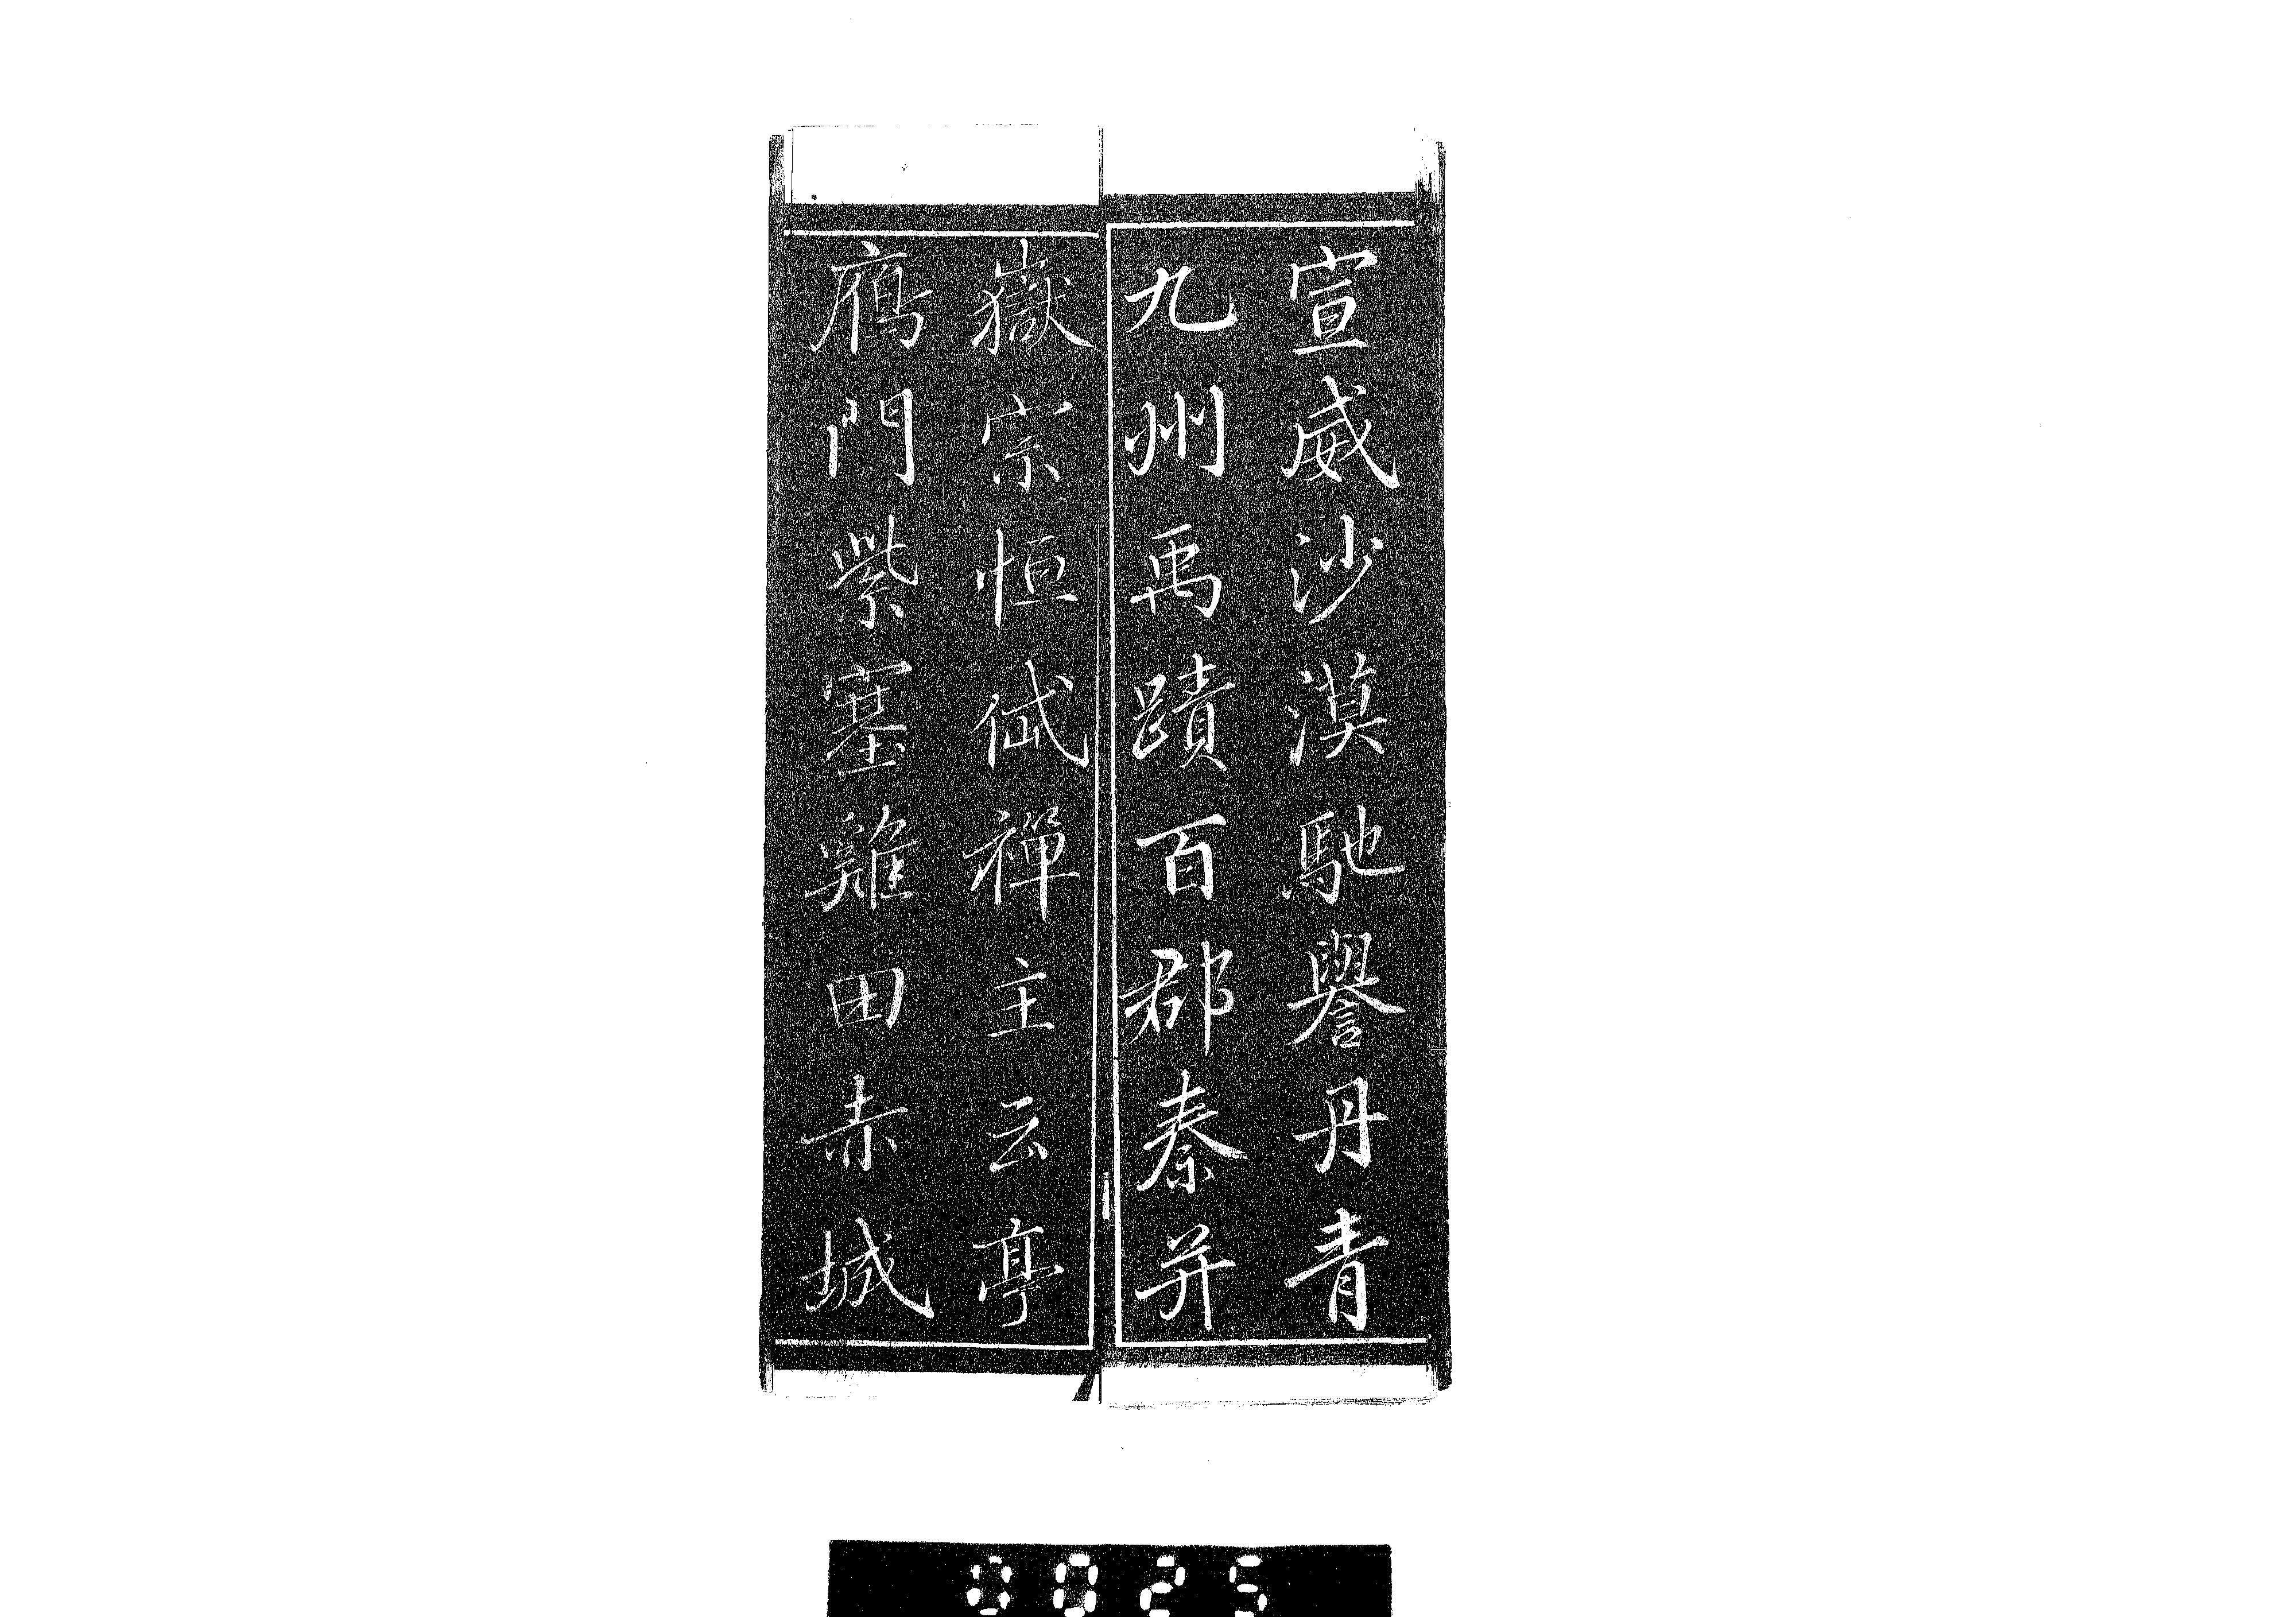 宣威沙漠馳譽丹青
九州禹蹟百郡秦并
嶽宗恒岱禪主云亭
鴈門紫塞雞田赤城
0025